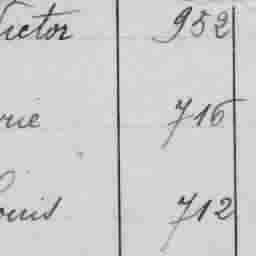 Victor 952
rie 716
ouis 712